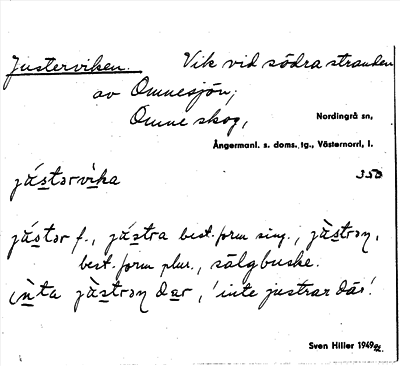 Justerviken. Vik vid södra stranden
av Omnesjön;
Omne skog,
Nordingrå sn,
Ångermanl. s. doms. tg., Västernorrl. l.
jástərvìka
350
jástər f., jástra best. form sing., jàstrən,
best. form plur., sälgbuske.
ìnta jàstrən dar, 'inte justrar där'.
Sven Hiller 1949